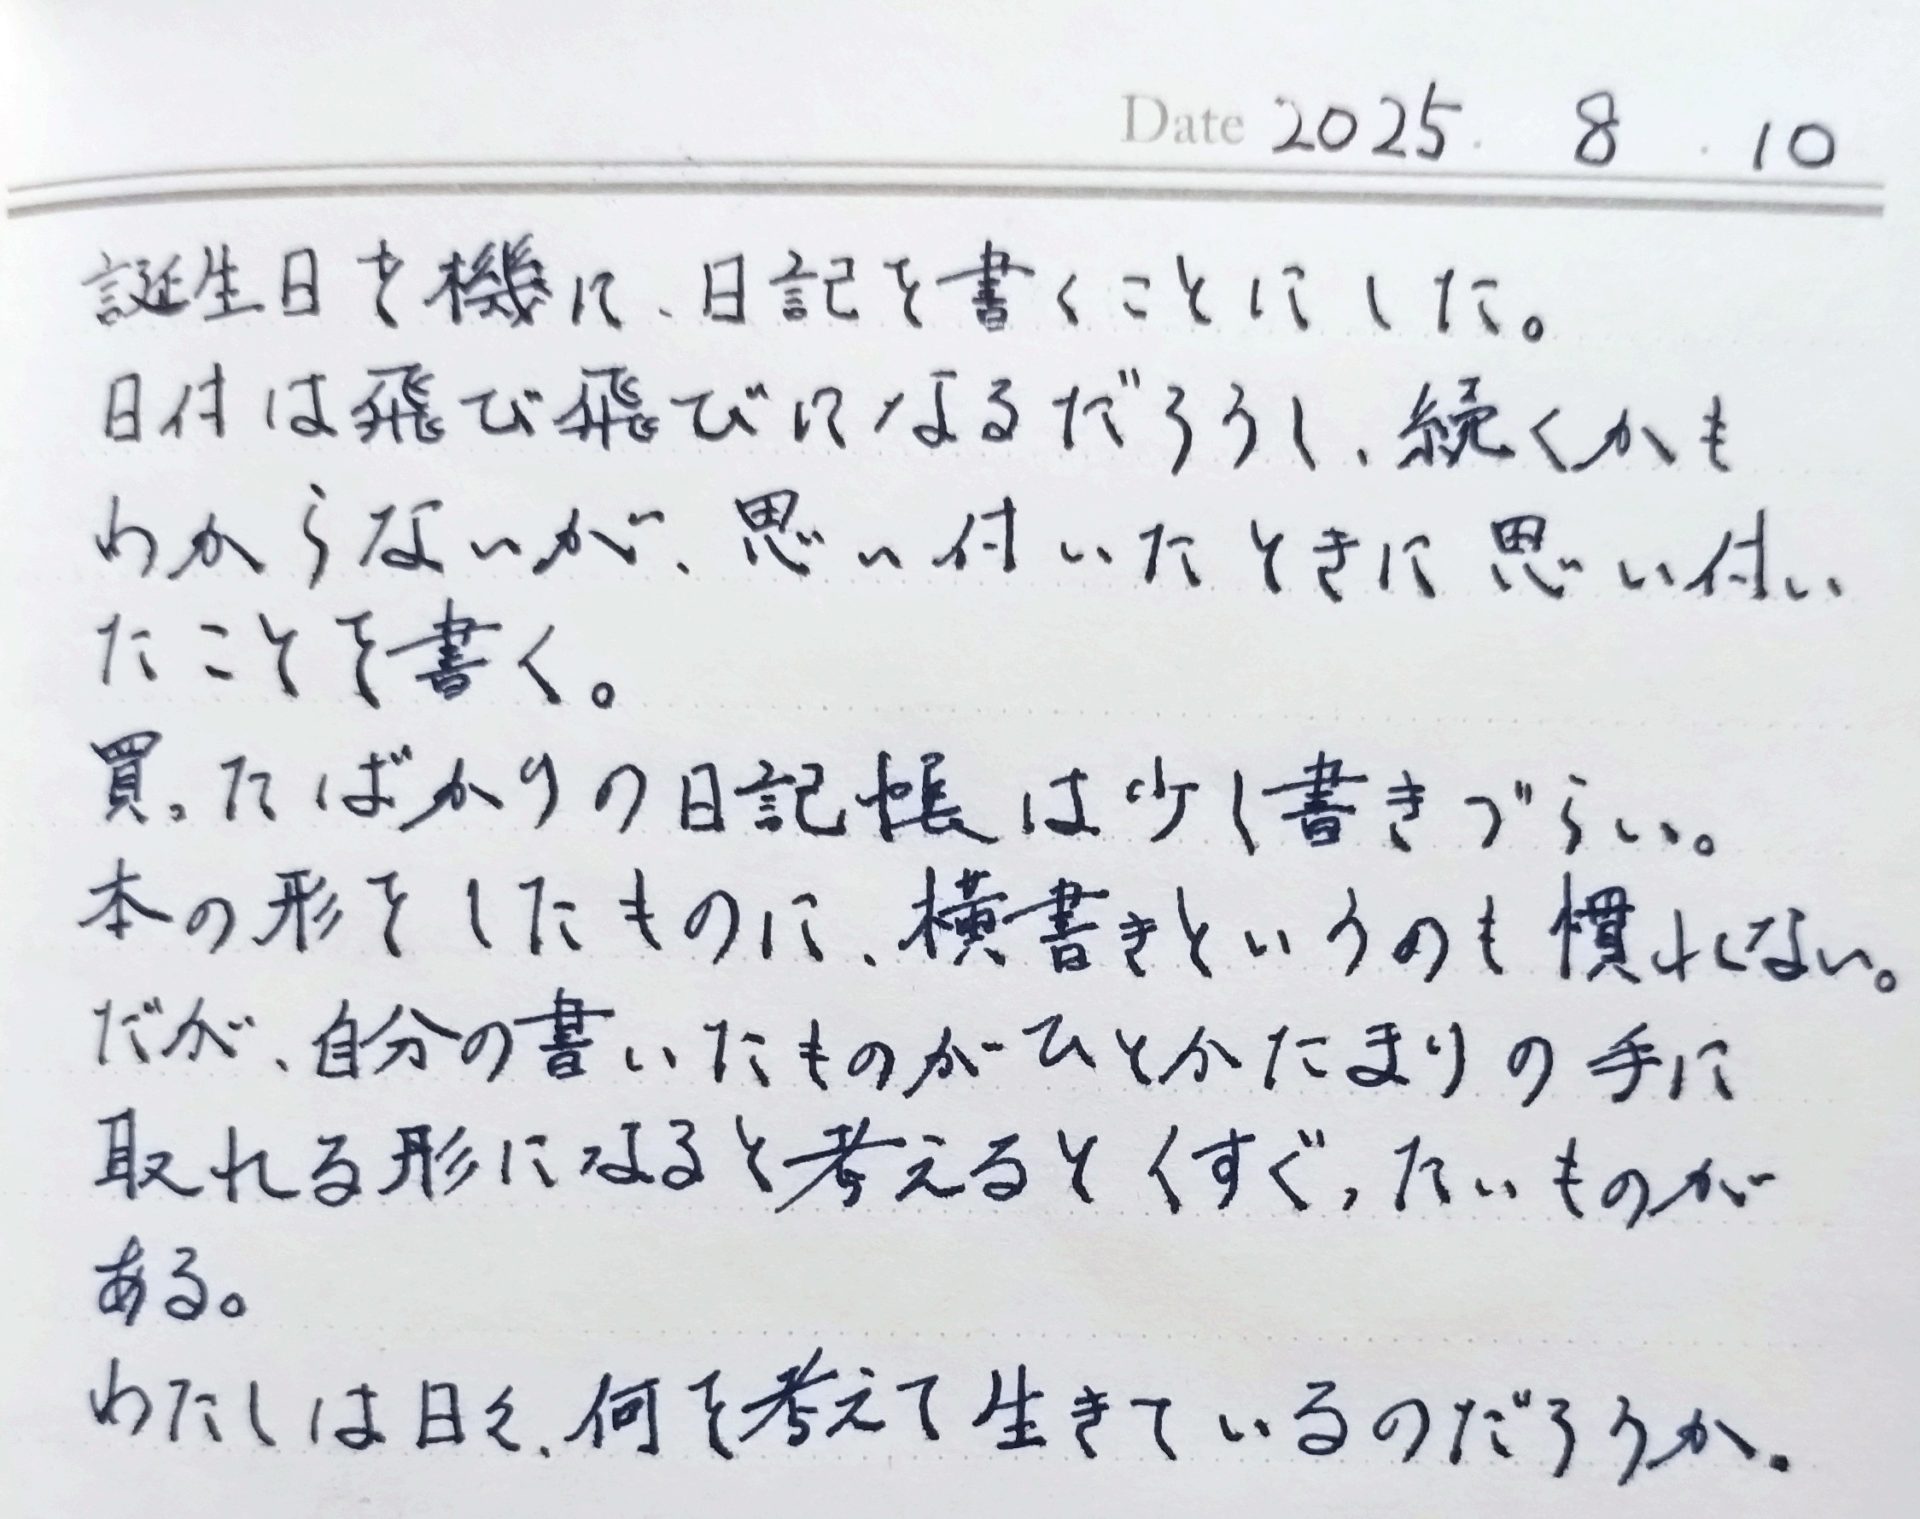 Date 2025. 8. 10
誕生日を機に、日記を書くことにした。
日付は飛び飛びになるだろうし、続くかも
わからないが、思い付いたときに思い付い
たことを書く。
買ったばかりの日記帳は少し書きづらい。
本の形をしたものに、横書きというのも慣れない。
だが、自分の書いたものがひとかたまりの手に
取れる形になると考えるとくすぐったいものが
ある。
わたしは日々、何を考えて生きているのだろうか.